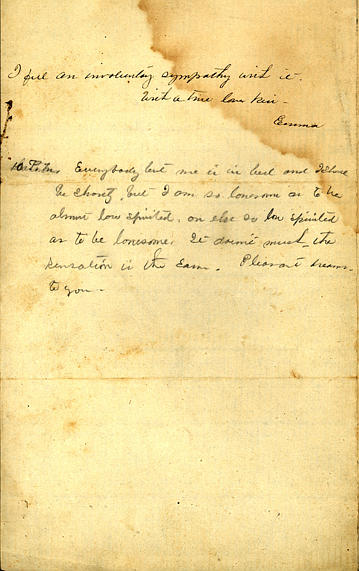 I feel an involuntary sympathy with it.
With a true love kiss -
Emma
Everybody but me is in bed and I
be short, but I am so lonesome as to be
almost low spirited, or else so low spirited
as to be lonesome. It doesn't much, the
sensation is the same. Pleasant dreams
to you -